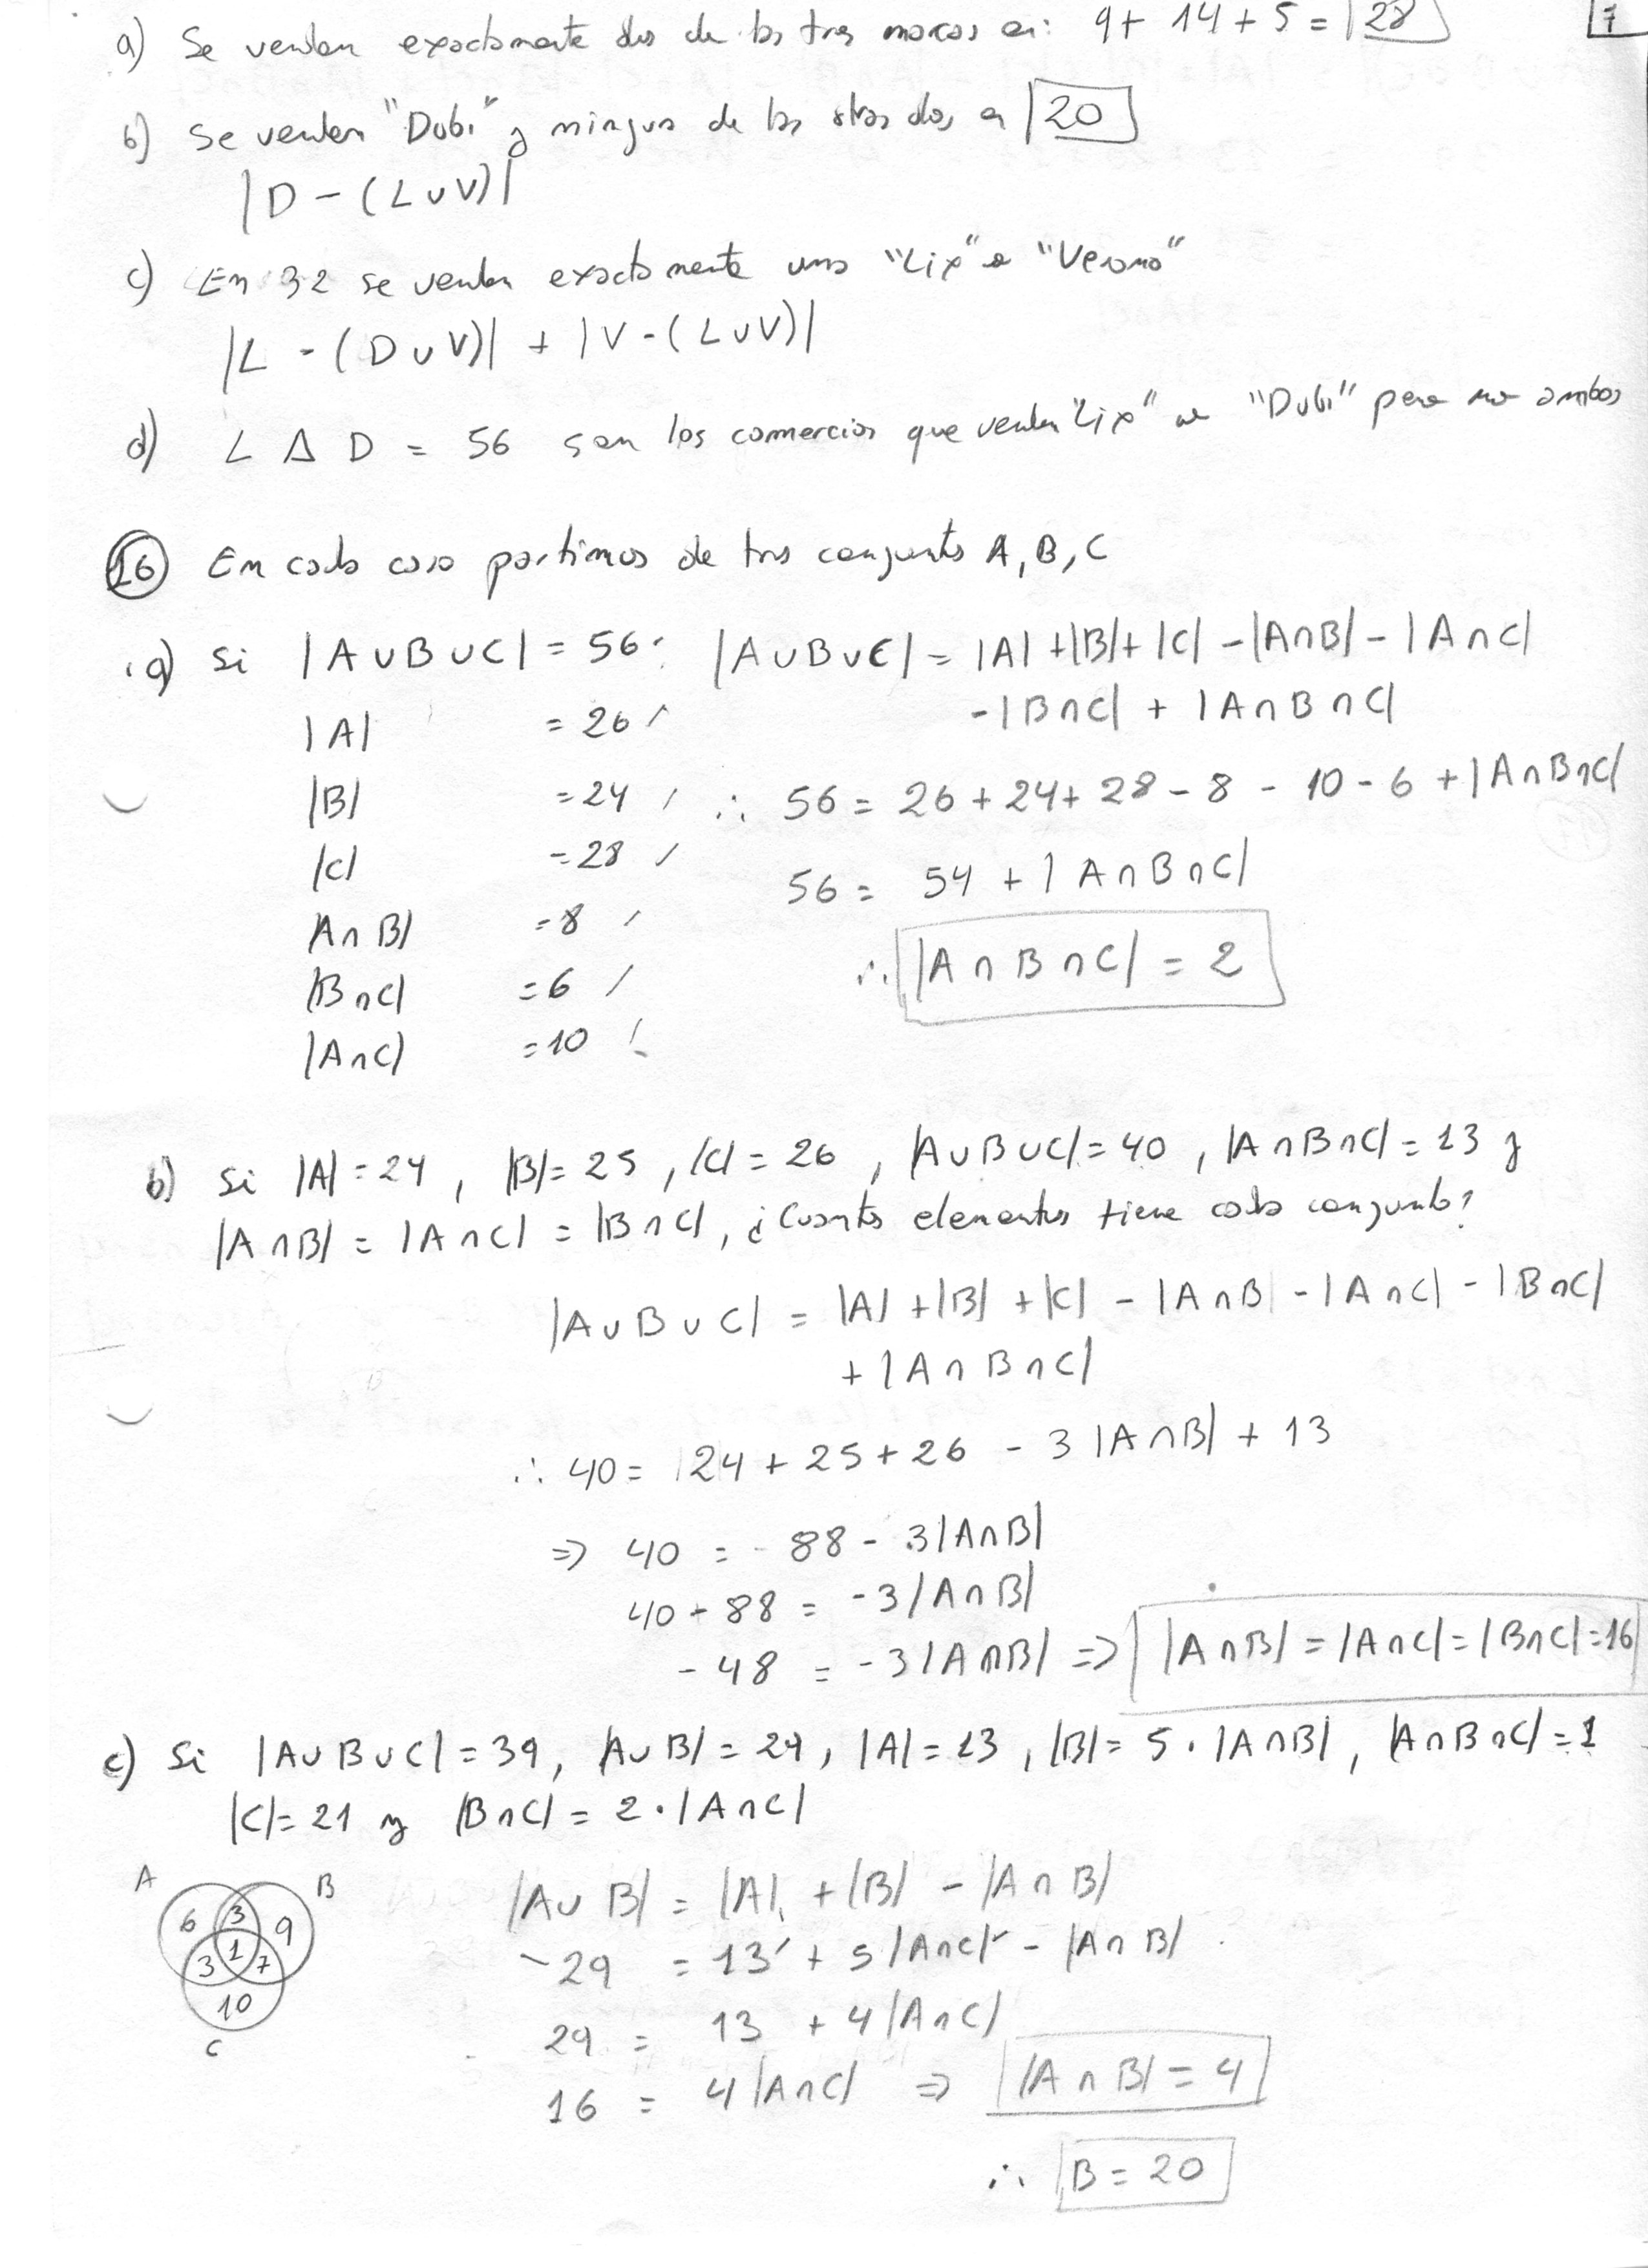 7
a) Se venden exactamente dos de las tres marcas en: 9 + 14 + 5 = 28
b) Se venden "Dubi" y ninguna de las otras dos, en 20
|D - (L ∪ V)|
c) En 32 se venden exactamente una "Lix" o "Verano"
|L - (D ∪ V)| + |V - (L ∪ V)|
d) L Δ D = 56 son los comercios que venden "Lix" o "Dubi" pero no ambos
16 En cada caso partimos de tres conjuntos A, B, C
a) Si |A ∪ B ∪ C| = 56 |A ∪ B ∪ C| = |A| + |B| + |C| - |A ∩ B| - |A ∩ C|
- |B ∩ C| + |A ∩ B ∩ C|
|A| = 26
|B| = 24 ∴ 56 = 26 + 24 + 28 - 8 - 10 - 6 + |A ∩ B ∩ C|
|C| = 28
56 = 54 + |A ∩ B ∩ C|
A ∩ B| = 8
∴ |A ∩ B ∩ C| = 2
|B ∩ C| = 6
|A ∩ C| = 10
b) Si |A| = 24, |B| = 25, |C| = 26, |A ∪ B ∪ C| = 40, |A ∩ B ∩ C| = 13 y
|A ∩ B| = |A ∩ C| = |B ∩ C|, ¿Cuantos elementos tiene cada conjunto?
|A ∪ B ∪ C| = |A| + |B| + |C| - |A ∩ B| - |A ∩ C| - |B ∩ C|
+ |A ∩ B ∩ C|
∴ 40 = 24 + 25 + 26 - 3 |A ∩ B| + 13
=> 40 = 88 - 3 |A ∩ B|
40 - 88 = -3 |A ∩ B|
- 48 = -3 |A ∩ B| => |A ∩ B| = |A ∩ C| = |B ∩ C| = 16
c) Si |A ∪ B ∪ C| = 39, |A ∪ B| = 29, |A| = 13, |B| = 5 · |A ∩ B|, |A ∩ B ∩ C| = 1
|C| = 21 y |B ∩ C| = 2 · |A ∩ C|
A B
6 3 9
3 1 7
10
C
|A ∪ B| = |A| + |B| - |A ∩ B|
29 = 13 + 5 |A ∩ C| - |A ∩ B|
29 = 13 + 4 |A ∩ C|
16 = 4 |A ∩ C| => |A ∩ B| = 4
∴ B = 20